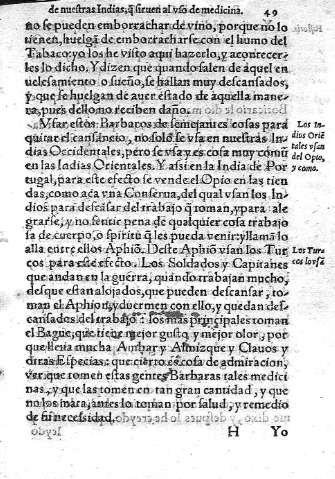 de nuestras Indias, q̃ siruen al vso de medicina. 49
no se pueden emborrachar de vino, porque no lo
tienen, huelgã de emborracharse con el humo del
Tabaco yo los he visto aqui hazerlo, y acontecer-
les lo dicho. Y dizen que quando salen de aquel en
uelesamiento o sueño, se hallan muy descansados,
y que se huelgan de auer estado de aquella mane-
ra, pues dello no reciben daño.
Vsan estos Barbaros de semejantes cosas para
quitar el cansancio, no solo se vsa en nuestras In-
dias Occidentales, pero se vsa y es cosa muy comũ
en las Indias Orientales. Y assi en la India de Por
tugal, para este efecto se vende el Opio en las tien
das, como aca vna Conserua, del qual vsan los In-
dios para descãsar del trabajo q̃ toman, y para ale
grarse, y no sentir pena de qualquier cosa trabajo
sa de cuerpo, o spiritu q̃ les pueda venir: y llamã lo
alla entre ellos Aphiõ. Deste Aphiõ vsan los Tur
cos para este efecto. Los Soldados y Capitanes
que andan en la guerra, quando trabajan mucho,
desque estan alojados, que pueden descansar, to-
man el Aphion, y duermen con ello, y quedan des-
cansados del trabajo: los mas principales toman
el Bague, que tiene mejor gusto, y mejor olor, por
que lleua mucha Ambar y Almizque y Clauos y
otras Especias: que cierto es cosa de admiracion,
ver que tomen estas gentes Barbaras tales medici
nas, y que las tomen en tan gran cantidad, y que
no los mata, antes lo toman por salud, y remedio
de su necessidad.
H Yo
Los In-
dios Oriẽ
tales vsan
del Opio,
y como.
Los Tur
cos lo vsã